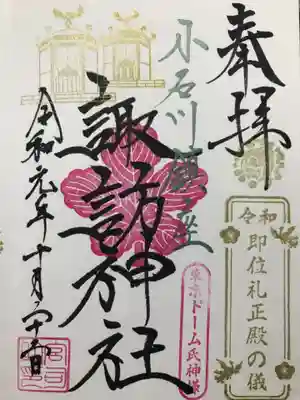 奉拝
令和
即位礼正殿の儀
小石川鎮座
東京ドーム氏神様
諏訪神社
令和元年十月